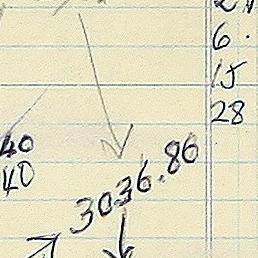 6.
15
28
40
40
3036.86